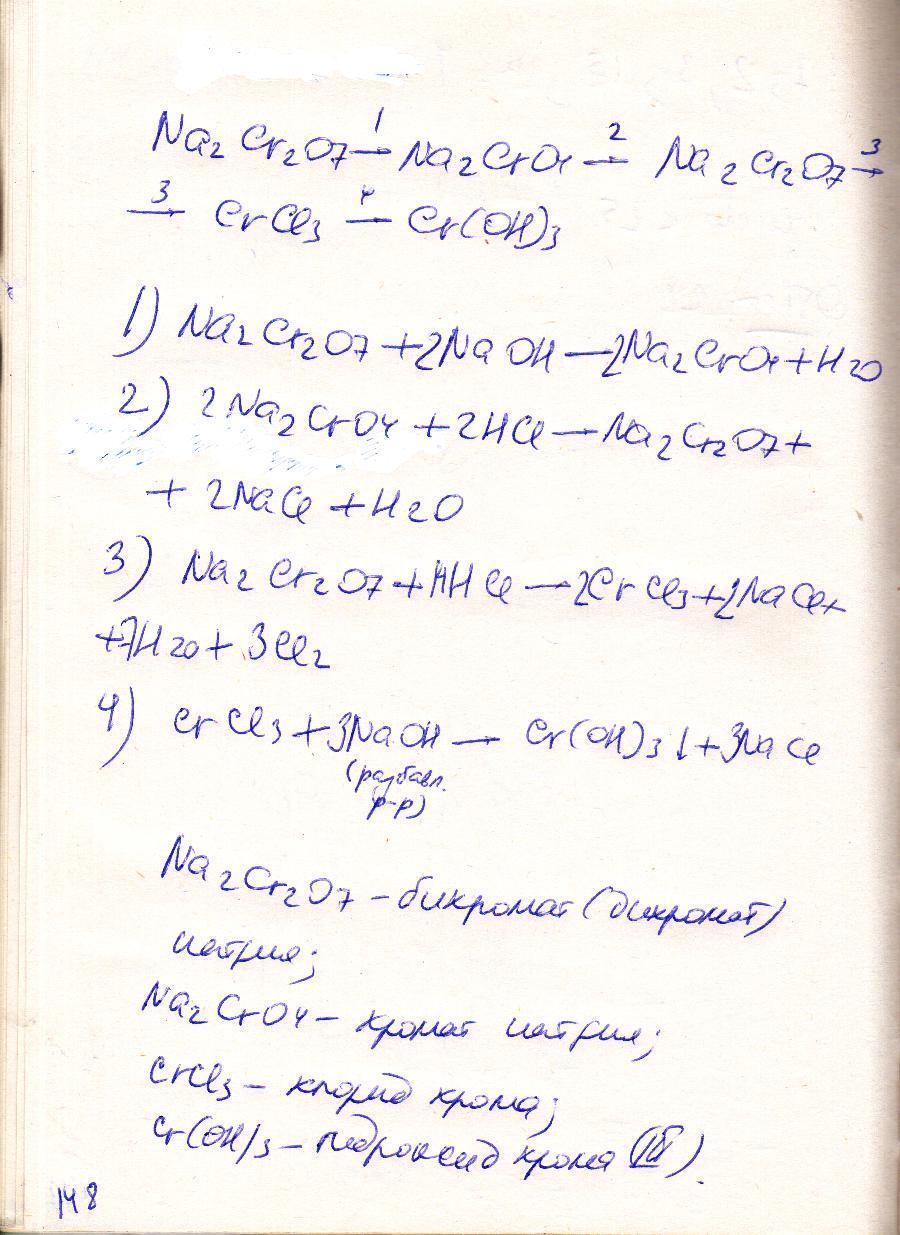 Na₂Cr₂O7 →1 Na₂CrO4 →2 Na₂Cr₂O7 →3
→3 CrCl₃ →4 Cr(OH)₃
1) Na₂Cr₂O7 + 2NaOH — 2Na₂CrO4 + H₂O
2) 2Na₂CrO4 + 2HCl — Na₂Cr₂O7 +
+ 2NaCl + H₂O
3) Na₂Cr₂O7 + 14HCl — 2CrCl₃ + 2NaCl +
+ 7H₂O + 3Cl₂
4) CrCl₃ + 3NaOH — Cr(OH)₃↓ + 3NaCl
(разбавл.
р-р)
Na₂Cr₂O7 – бихромат (дихромат)
натрия;
Na₂CrO4 – хромат натрия;
CrCl₃ – хлорид хрома;
Cr(OH)₃ – гидроксид хрома (III).
148